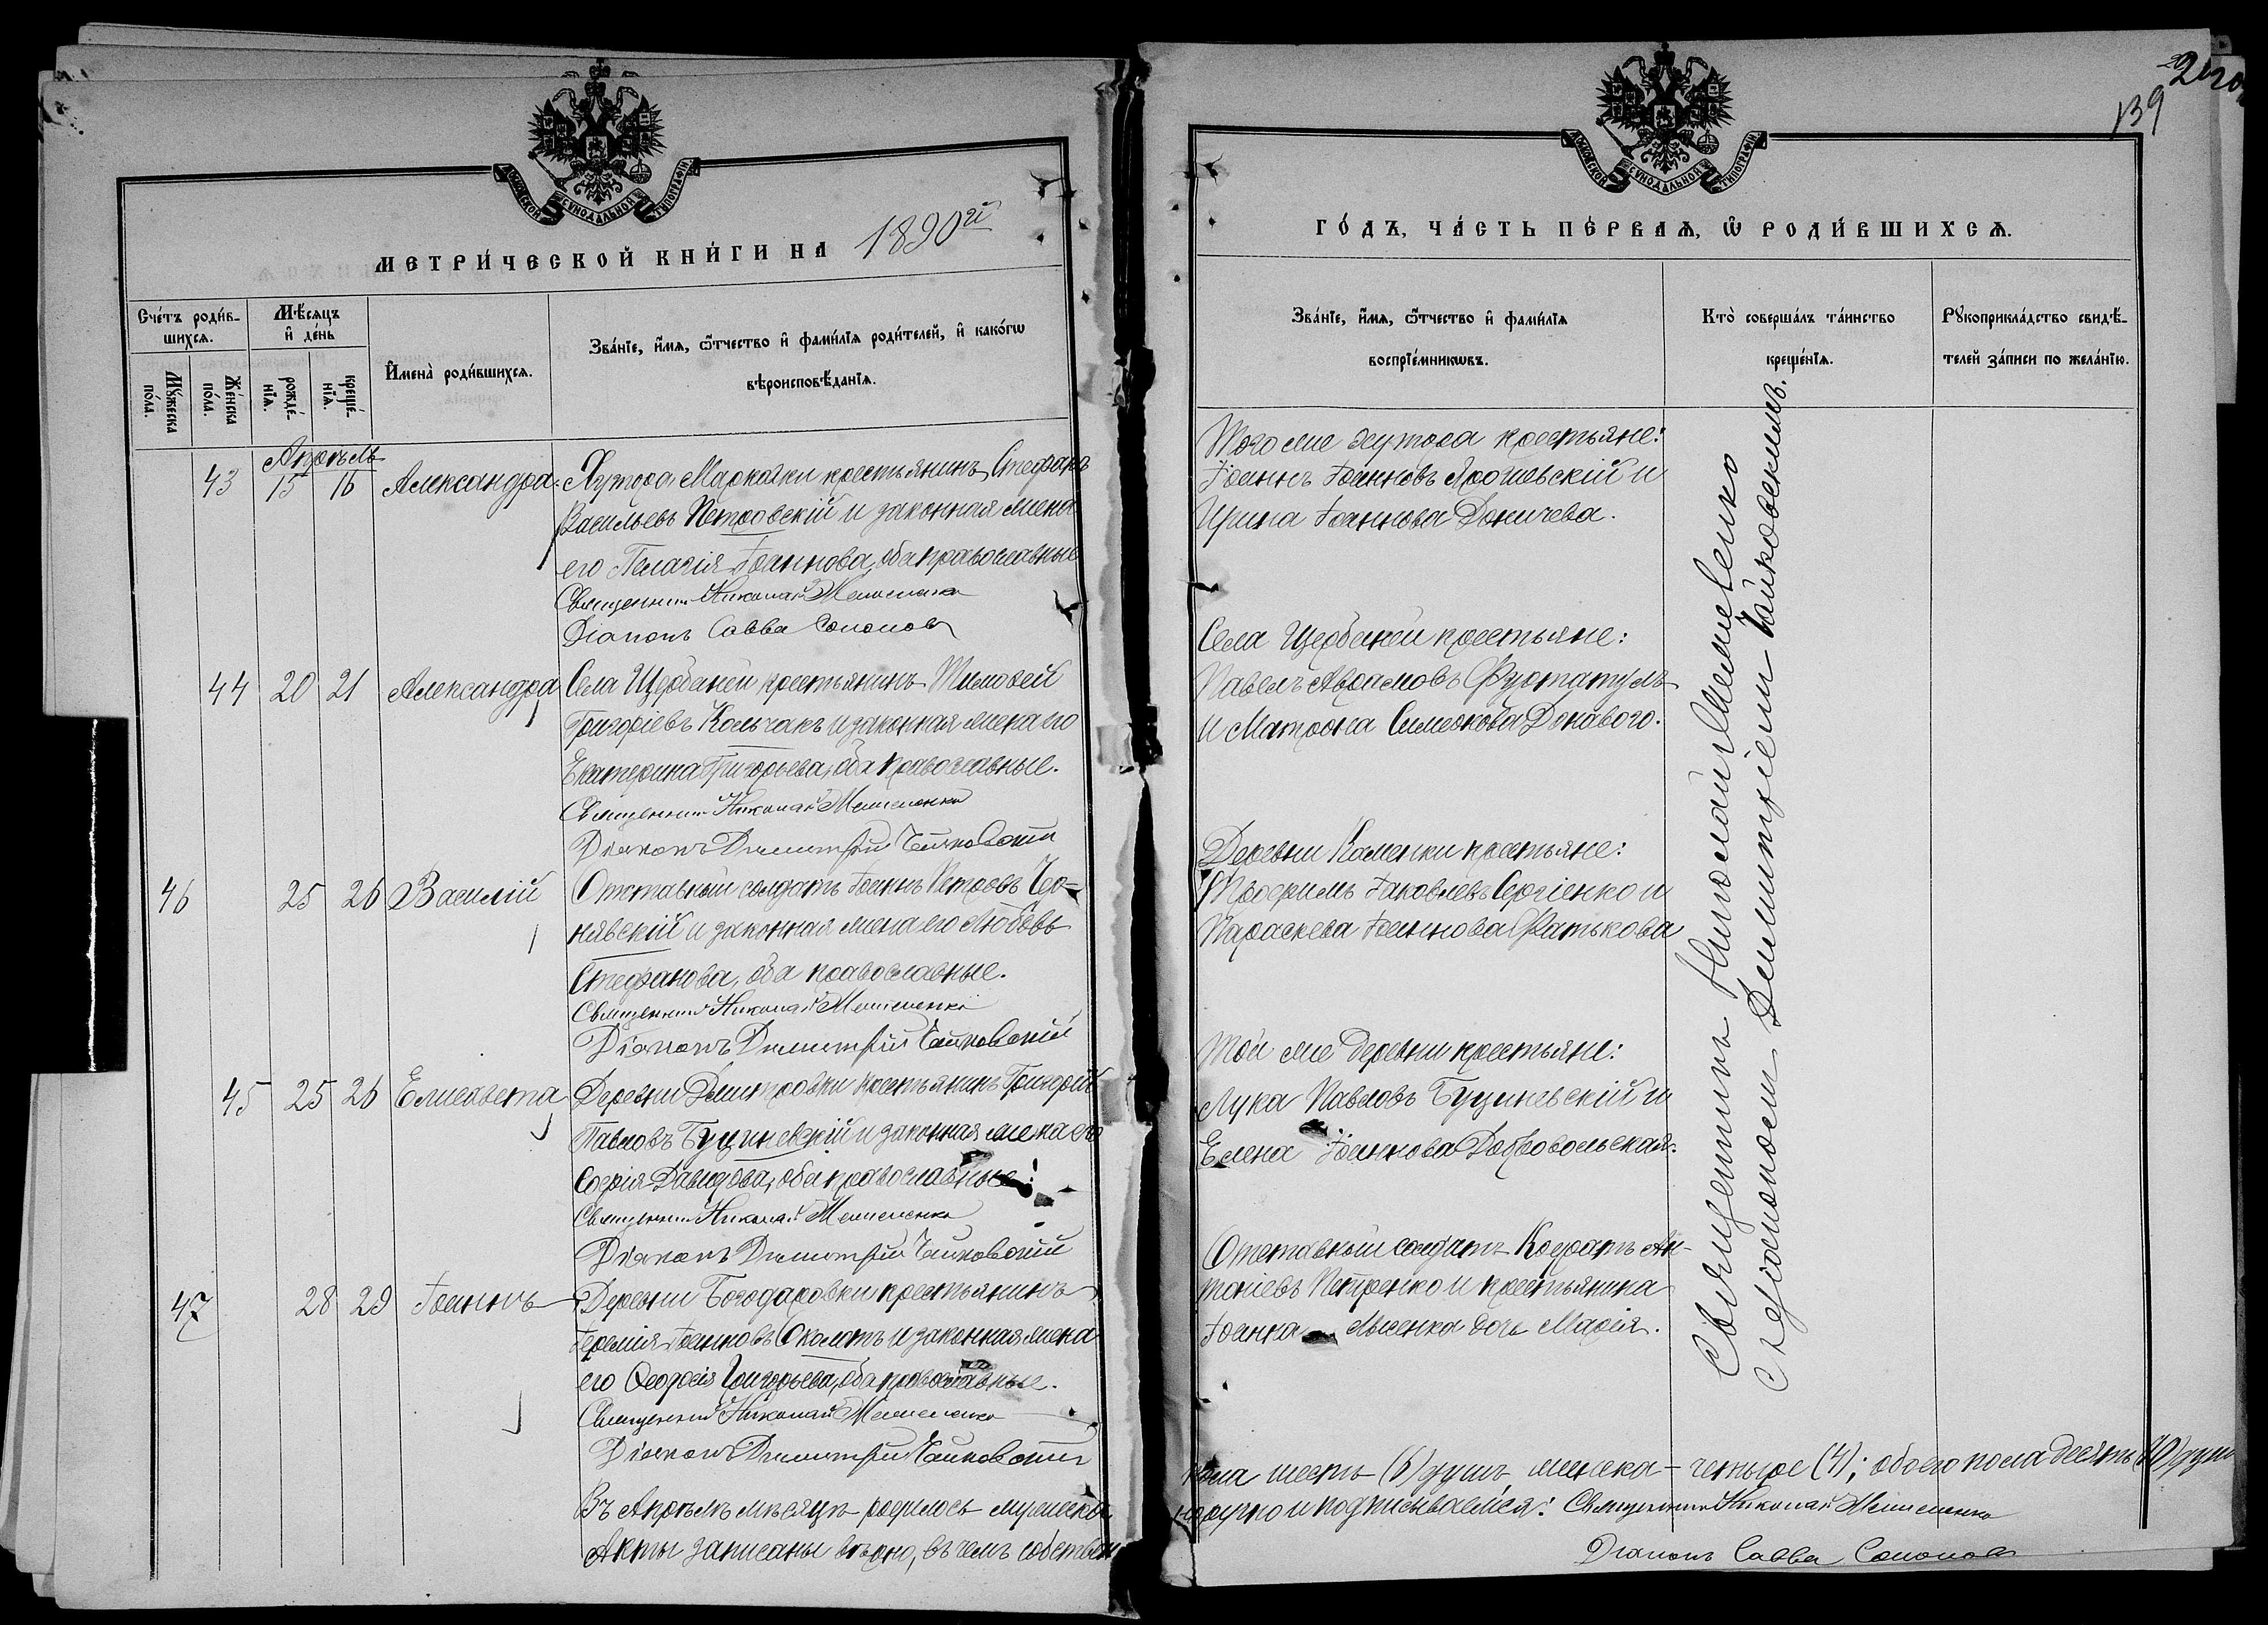 МЕТРИ́ЧЕСКОЙ КНИ́ГИ НА 1890й
Сче́тъ роди́в-
шихсѧ.
Мѣ́сяцъ
и҆ де́нь
Мꙋ́жеска
по́ла.
Же́нска
по́ла.
рожде́-
нїѧ.
креще́-
нїѧ.
И҆мена̀ роди́вшихсѧ.
Зва́нїе, и҆́мѧ, ѻ҆́тчество и҆ фами́лїѧ роди́телей, и҆ како́гѡ
вѣроисповѣ́данїѧ.
Апрѣль
43 15 16 Александра Хутора Марковки крестьянинъ Стефанъ
Васильевъ Петровскій и законная жена
его Пелагія Іоаннова, оба православные
Священникъ Николай
Діаконъ Савва Соломоновъ
44 20 21 Александра Села Щербаней крестьянинъ Тимофей
Григоріевъ Колчакъ и законная жена его
Екатерина Григорьева, оба православные.
Священникъ Николай
Діаконъ Димитрій Чайковскій
46 25 26 Василій Отставной солдатъ Іоаннъ Петровъ Чер-
нявскій и законная жена его Любовь
Стефанова, оба православные.
Священникъ Николай
Діаконъ Димитрій Чайковскій
45 25 26 Елисавета Деревни Дмитровки крестьянинъ Григорій
Павловъ Буциневскій и законная жена его
Софія Давидова, оба православные.
Священникъ Николай
Діаконъ Димитрій Чайковскій
47 28 29 Іоаннъ Деревни Богодаровки крестьянинъ
Іеремія Іоанновъ Околотъ и законная жена
его Ѳеодосія Григорьева, оба православные.
Священникъ Николай
Діаконъ Димитрій Чайковскій
Въ Апрѣлѣ мѣсяцѣ родилось мужеска
Акты записаны вѣрно, въ чемъ собствен
139
ГО́ДЪ, ЧА́СТЬ ПЕ́РВАѦ, Ѽ РОДИ́ВШИХСѦ.
Зва́нїе, и҆́мѧ, ѻ҆́тчество и҆ фами́лїѧ
воспрїе́мникѡвъ.
Кто̀ соверша́лъ та́инство
креще́нїѧ.
Рꙋкоприкла́дство свидѣ́-
телей за́писи по жела́нїю.
Того же хутора крестьяне:
Іоаннъ Іоанновъ Ярошевскій и
Ирина Іоаннова Доничева.
Села Щербаней крестьяне:
Павелъ Аврамовъ
и Матрона Симеонова
Деревни Каменки крестьяне:
Трофимъ Іаковлевъ Сергіенко и
Параскева Іоаннова Фатькова
Той же деревни крестьяне:
Лука Павловъ Буциневскій и
Елена Іоаннова Добровольская.
Отставной солдатъ Кодратъ Ан-
тоніевъ Петренко и крестьянина
Іоанна Лысенка дочь Марія.
Священникъ Николай
съ діакономъ Димитріемъ Чайковскимъ.
пола шесть (6) душъ, женска – четыре (4); обоего пола десять (10) душъ
норучно и подписываемся: Священникъ Николай
Діаконъ Савва Соломоновъ